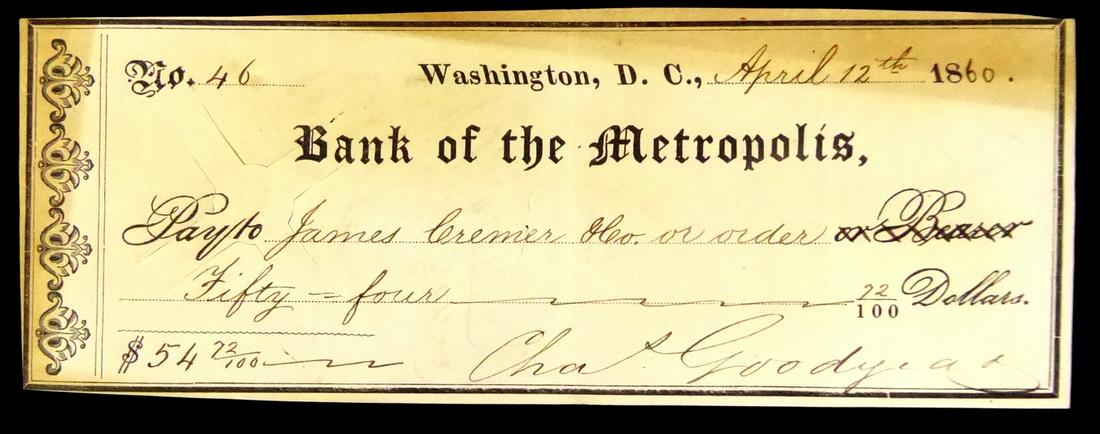 No. 46 Washington, D. C., April 12th 1860.
Bank of the Metropolis,
Pay to James Cremer &Co. or order or Bearer
Fifty = four 72/100 Dollars.
$ 54 72/100
Chas Goodyear